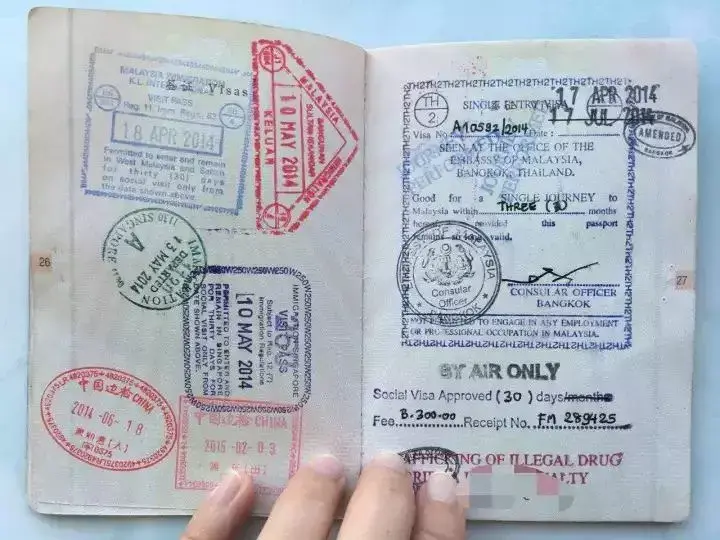 签证 Visas
MALAYSIA IMMIGRATION
K.L. INTERNATIONAL
VISIT PASS
Reg. 11 Imm. Regs. 63
18 APR 2014
Permitted to enter and remain
in West Malaysia and Sabah
for thirty (30) days
on social visit only from
the date shown above.
MALAYSIA
IMMIGRATION
BANGUNAN
SULTAN ISKANDAR
10 MAY 2014
KELUAR
SINGAPORE
A
DEPARTED
13 MAY 2014
26
IMMIGRATION SINGAPORE
VISIT PASS
Subject to Reg. 12 (7)
Immigration Regulations
10 MAY 2014
PERMITTED TO ENTER AND
REMAIN IN SINGAPORE
FOR THIRTY DAYS ON
SOCIAL VISIT ONLY FROM
DATE SHOWN ABOVE
中国边检 CHINA
2014-06-18
中国边检 CHINA
2015-02-03
TH
2
SINGLE ENTRY VISA
17 APR 2014
17 JUL 2014
AMENDED
BANGKOK
Visa No A10592/2014 Date:
SEEN AT THE OFFICE OF THE
EMBASSY OF MALAYSIA,
BANGKOK, THAILAND.
Good for a SINGLE JOURNEY to
Malaysia within THREE (3) months
hereof provided this passport
remains so long valid.
Consular
Officer
CONSULAR OFFICER
BANGKOK
NOT PERMITTED TO ENGAGE IN ANY EMPLOYMENT
OR PROFESSIONAL OCCUPATION IN MALAYSIA.
27
BY AIR ONLY
Social Visa Approved (30) days/months
Fee B.300.00 Receipt No. FM 289425
TRAFFICKING OF ILLEGAL DRUG